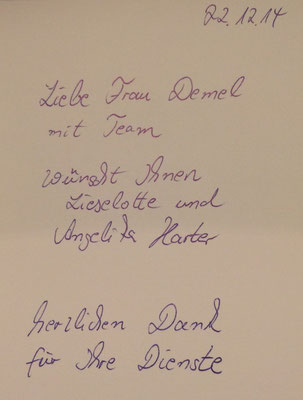 22.12.14
Liebe Frau Demel
mit Team
wünscht Ihnen
Lieselotte und
Angelika Harter
herzlichen Dank
für Ihre Dienste